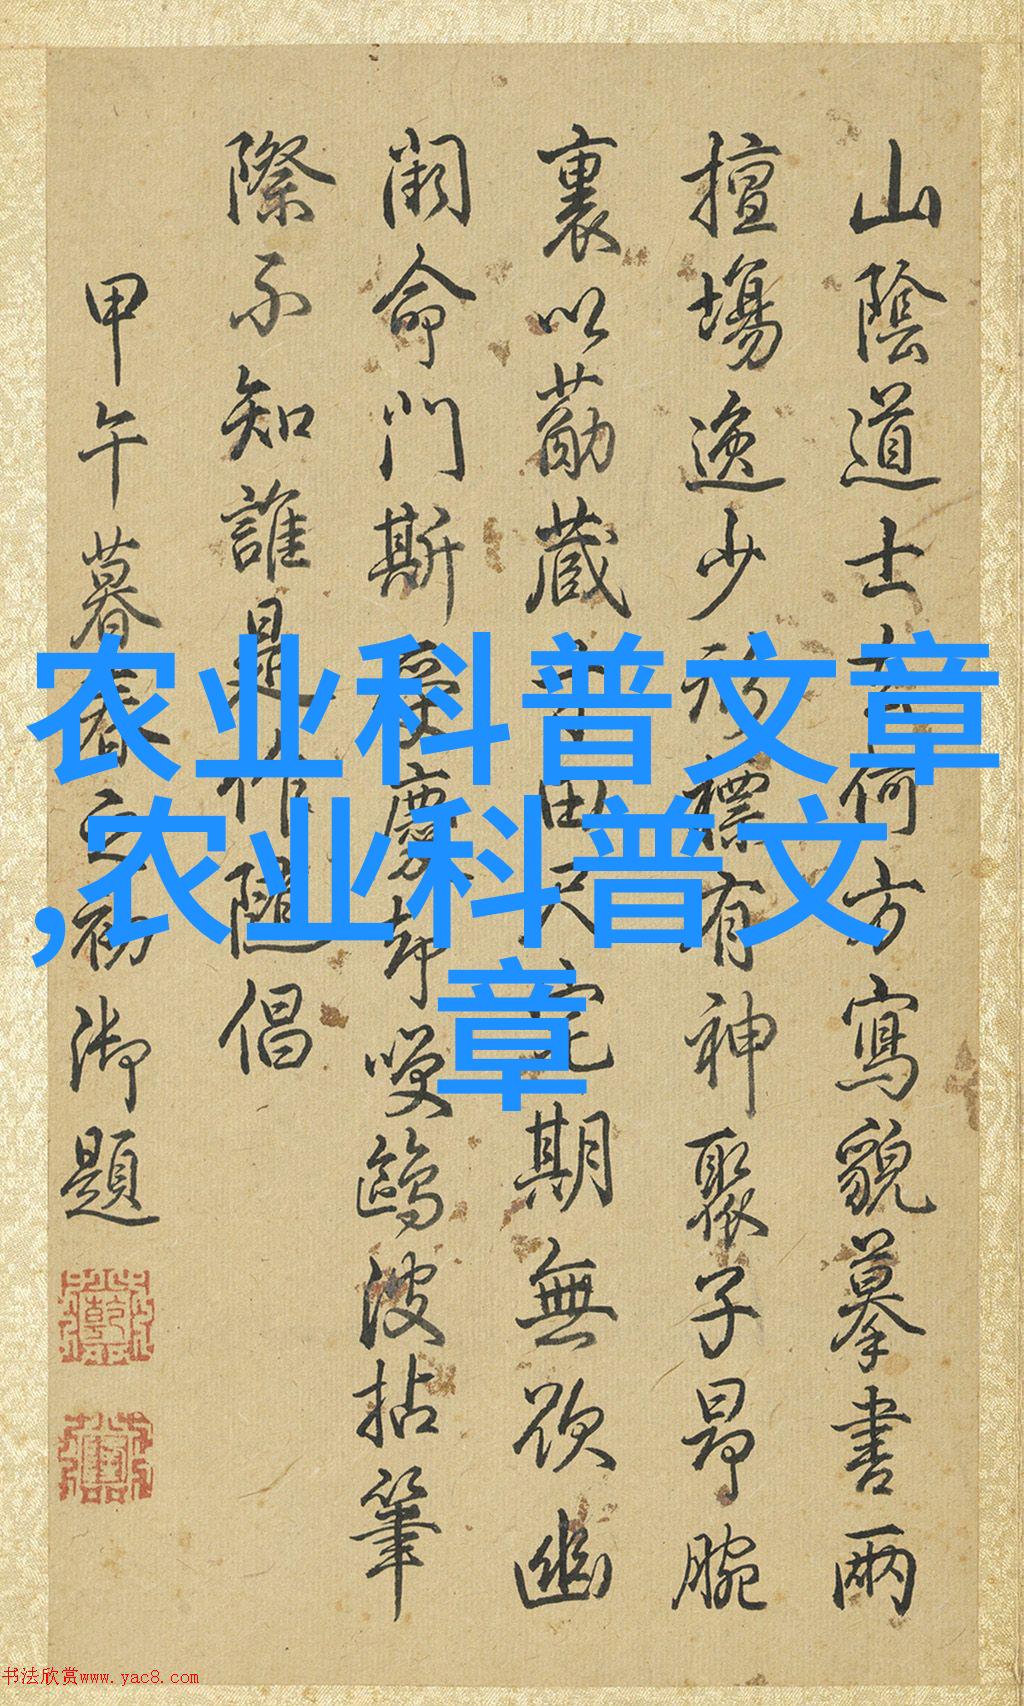 山陰道士云何方寫貌摹書兩
擅場逸少形標有神聚子昂腕
裏以藏田尺宅期無欲幽
闕命門斯受慶却哎鷗波拈筆
際不知誰是作隨倡
甲午暮春之初御題
农业科普文章
,农业科普文
章
书法欣赏www.yac8.com